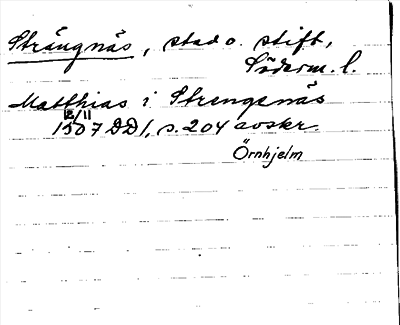 Strängnäs, stad o. stift,
Söderm. l.
Matthias i Strengenäs
12/11
1507 DD1, s. 204 avskr.
Örnhjelm